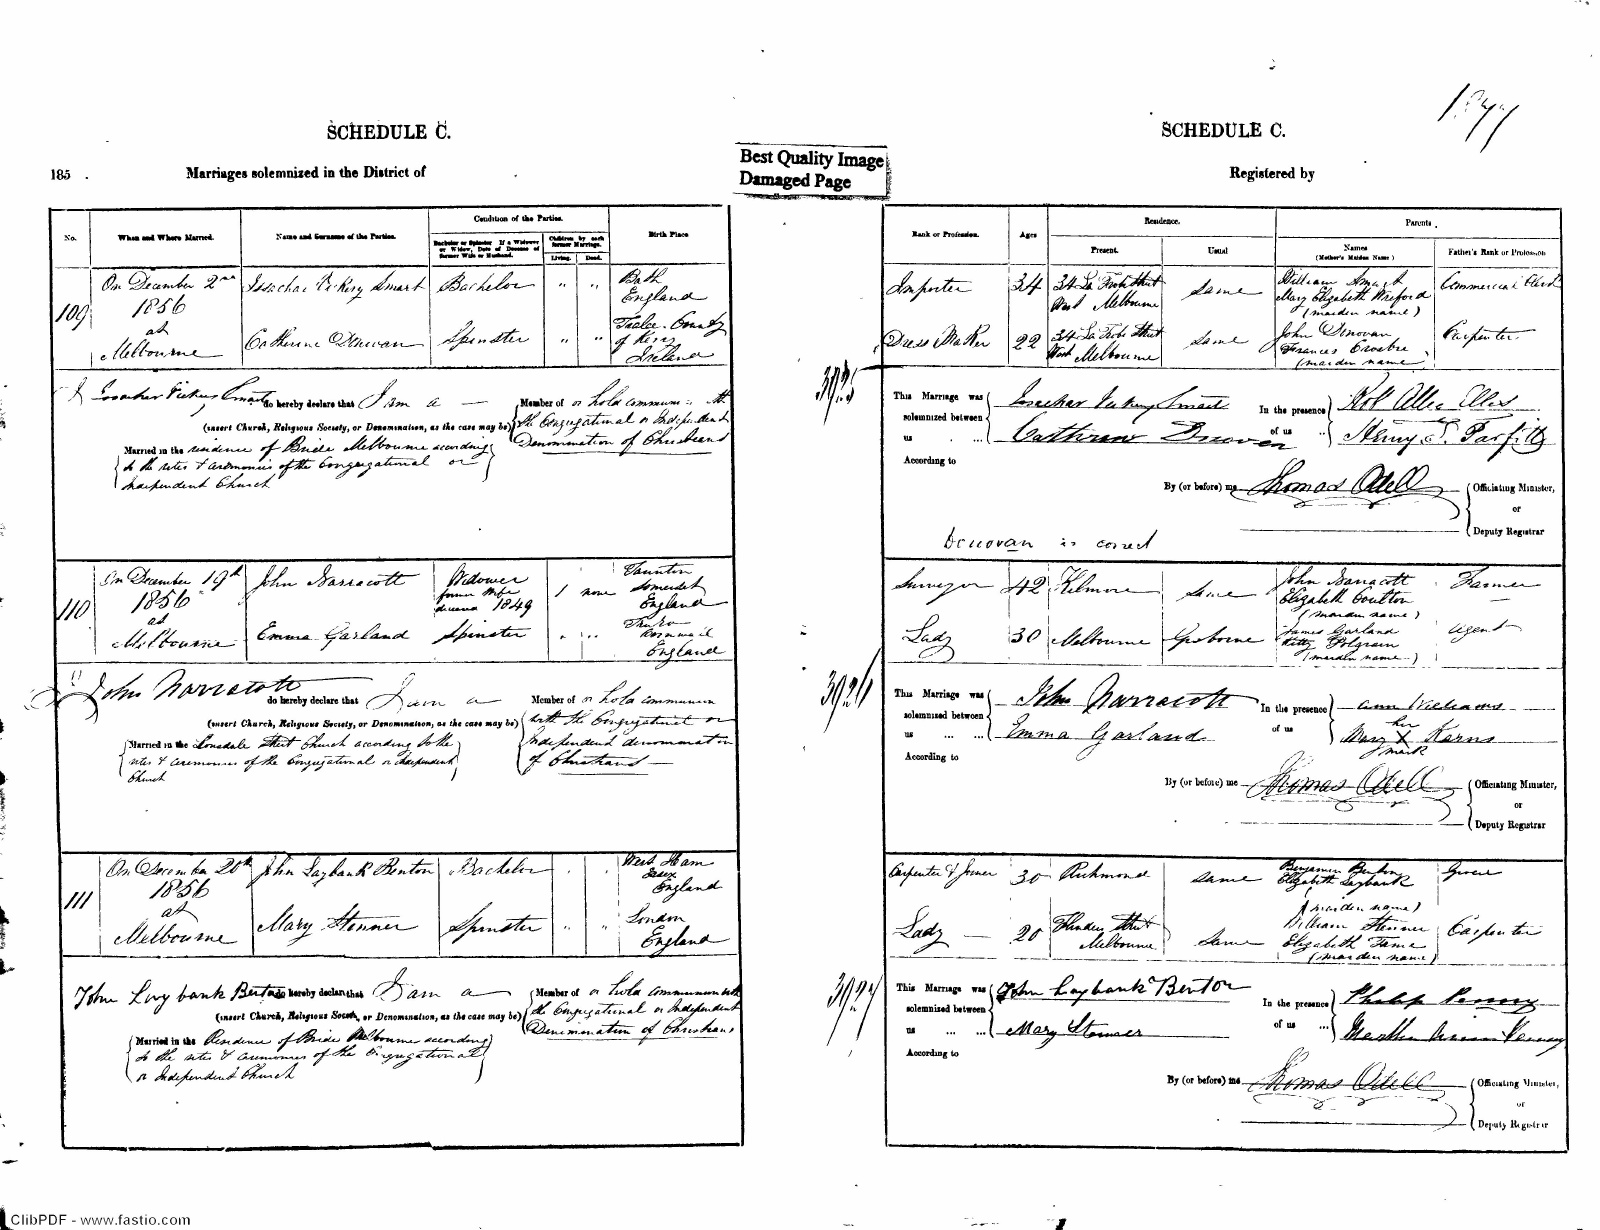 1577
SCHEDULE C.
SCHEDULE C.
Best Quality Image
Damaged Page
185 . Marriages solemnized in the District of
Registered by
No.
When and Where Married.
Name and Surname of the Parties.
Condition of the Parties.
Bachelor or Spinster If a Widower or Widow, Date of Decease of former Wife or Husband.
Children by each former Marriage.
Living. Dead.
Birth Place
Rank or Profession.
Ages
Residence.
Present.
Usual
Parents .
Names
(Mother's Maiden Name)
Father's Rank or Profession
109
On December 2nd
1856
at
Melbourne
Issachar Vickery Smart
Bachelor " "
Bath
England
Catherine Donovan
Spinster " "
Tralee. County
of Kerry
Ireland
Importer 34
34 La Trobe Street
West Melbourne
same
William Smart
Mary Elizabeth Wreford
(maiden name)
Commercial Clerk
Dress Maker 22
34 La Trobe Street
West Melbourne
same
John Donovan
Frances Crosbie
(maiden name)
Carpenter
I Issachar Vickery Smart do hereby declare that I am a — Member of or hold communion with
(insert Church, Religious Society, or Denomination, as the case may be) the Congregational or Independent
Denomination of Christians
Married in the residence of Bride Melbourne according
to the rites & ceremonies of the Congregational or
Independent Church
3925
This Marriage was Issachar Vickery Smart In the presence Robt Allee Elles
solemnized between
us ... ... Catherine Donoven of us ... Henry S. Parfitt
According to
By (or before) me Thomas Odell Officiating Minister,
or
Deputy Registrar
Donovan is correct
110
On December 19th
1856
at
Melbourne
John Narracott
Widower
former Wife
deceased 1849
1 none
Taunton
Somerset
England
Emma Garland
Spinster " "
Truro
Cornwall
England
Surveyor 42 Kilmore same
John Narracott
Elizabeth Coulton
(maiden name)
Farmer
Lady 30 Melbourne Gisborne
James Garland
Kitty Polgrain
(maiden name)
Agent
I John Narracott
do hereby declare that I am a Member of or hold communion
(insert Church, Religious Society, or Denomination, as the case may be) with the Congregational or
Independent denomination
of Christians
Married in the Lonsdale Street Church according to the
rites & ceremonies of the Congregational or Independent
Church
3926
This Marriage was John Narracott In the presence Ann Williams
solemnized between
us ... ... Emma Garland of us
her
Mary X Karns
mark
According to
By (or before) me Thomas Odell Officiating Minister,
or
Deputy Registrar
111
On December 20th
1856
at
Melbourne
John Laybank Benton
Bachelor
West Ham
Essex
England
Mary Stenner
Spinster " "
London
England
Carpenter & Joiner 30 Richmond same
Benjamin Benton
Elizabeth Laybank
(maiden name)
Grocer
Lady — 20
Flinders Street
Melbourne
same
William Stenner
Elizabeth Fame
(maiden name)
Carpenter
John Laybank Benton do hereby declare that I am a Member of or hold communion with
(insert Church, Religious Society, or Denomination, as the case may be) the Congregational or Independent
Denomination of Christians
Married in the Residence of Bride Melbourne according
to the rites & ceremonies of the Congregational
or Independent Church
3927
This Marriage was John Laybank Benton In the presence Philip Penny
solemnized between
us ... ... Mary Stenner of us ... Martha Penny
According to
By (or before) me Thomas Odell Officiating Minister,
or
Deputy Registrar
ClibPDF - www.fastio.com